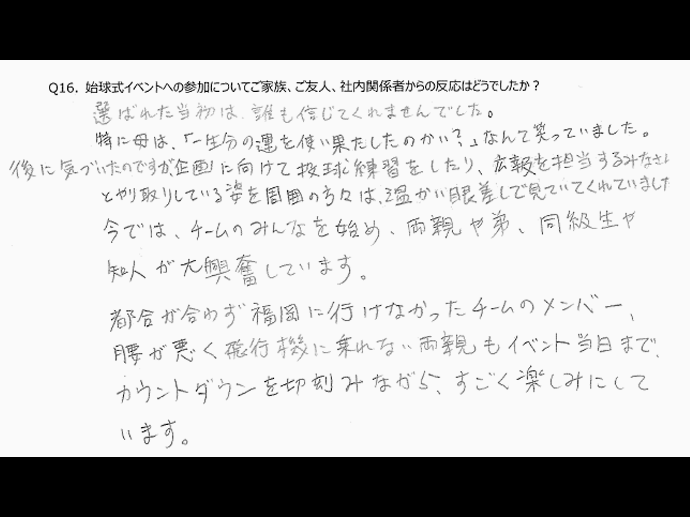 Q16. 始球式イベントへの参加についてご家族、ご友人、社内関係者からの反応はどうでしたか？
選ばれた当初は、誰も信じてくれませんでした。
特に母は、「一生分の運を使い果たしたのかい？」なんて笑っていました。
後に気づいたのですが、企画に向けて投球練習をしたり、広報を担当するみなさん
とやり取りしている姿を周囲の方々は、温かい眼差しで見ていてくれていました
今では、チームのみんなを始め、両親や弟、同級生や
知人が大興奮しています。
都合が合わず福岡に行けなかったチームのメンバー、
腰が悪く飛行機に乗れない両親もイベント当日まで、
カウントダウンを切刻みながら、すごく楽しみにして
います。